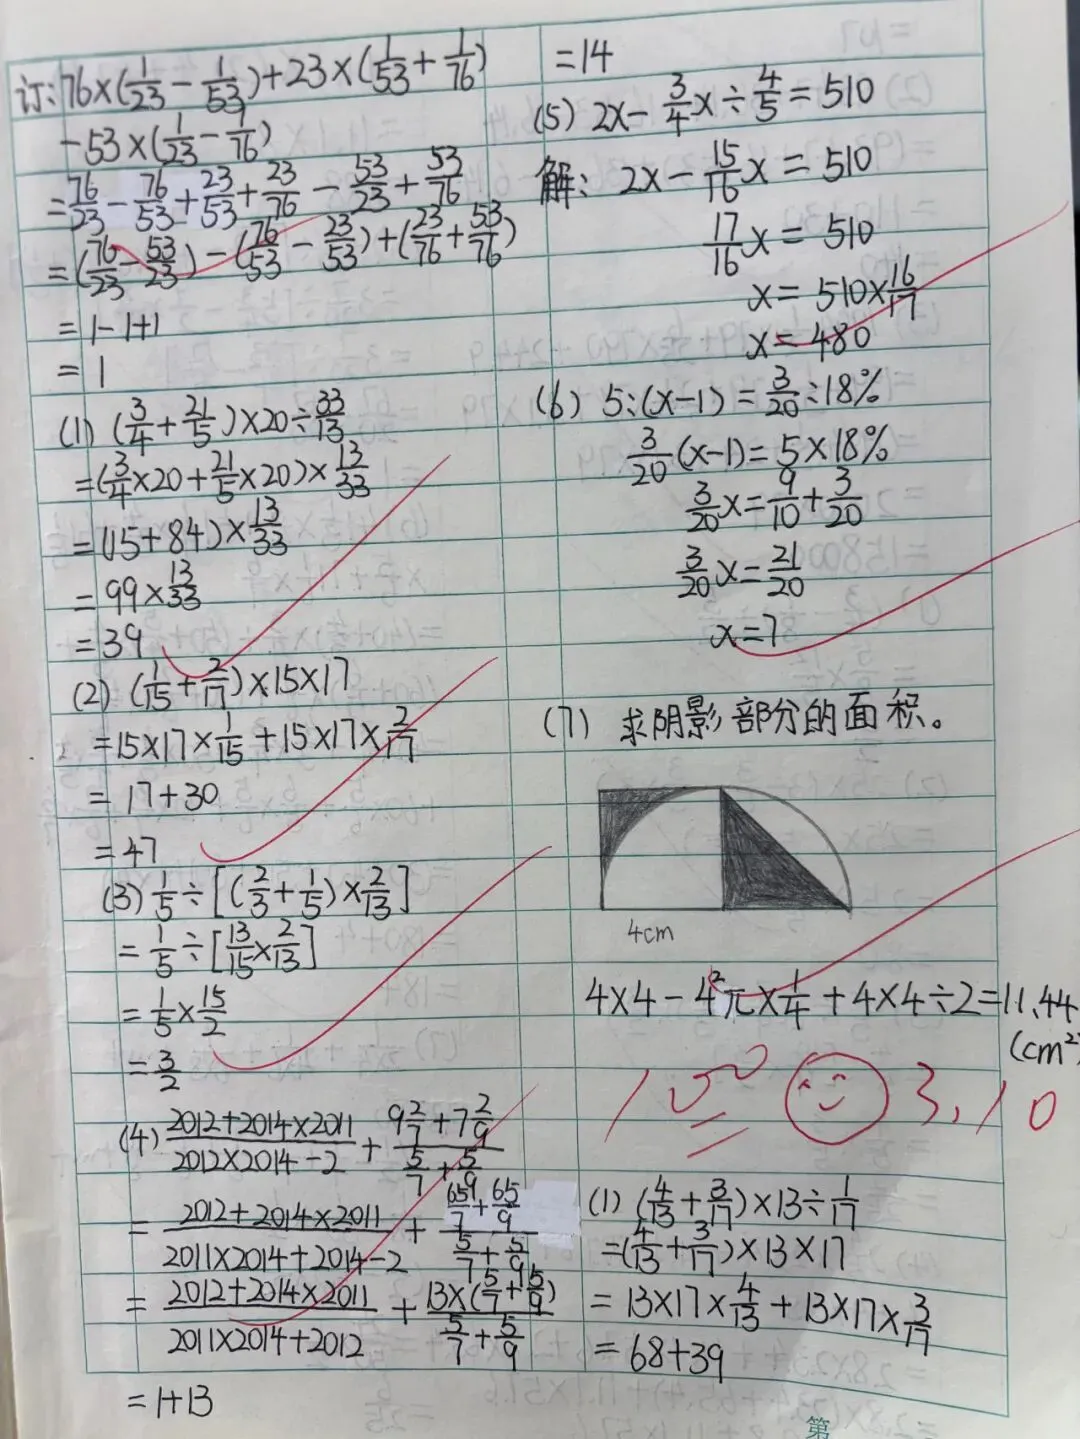 订: 76×(1/23 - 1/53) + 23×(1/53 + 1/76)
-53×(1/23 - 1/76)
= 76/23 - 76/53 + 23/53 + 23/76 - 53/23 + 53/76
= (76/23 - 53/23) - (76/53 - 23/53) + (23/76 + 53/76)
= 1-1+1
= 1
(1) (3/4 + 21/5)×20÷33/13
= (3/4×20 + 21/5×20)×13/33
= (15+84)×13/33
= 99×13/33
= 39
(2) (1/15 + 2/17)×15×17
= 15×17×1/15 + 15×17×2/17
= 17+30
= 47
(3) 1/5÷[(2/3 + 1/5)×2/13]
= 1/5÷[13/15×2/13]
= 1/5×15/2
= 3/2
(4) (2012+2014×2011)/(2012×2014-2) + (9 2/7 + 7 2/9)/(5/7 + 5/9)
= (2012+2014×2011)/(2011×2014+2014-2) + (65/7 + 65/9)/(5/7 + 5/9)
= (2012+2014×2011)/(2011×2014+2012) + 13×(5/7 + 5/9)/(5/7 + 5/9)
= 1+13
= 14
(5) 2x - 3/4x÷4/5 = 510
解: 2x - 15/16x = 510
17/16x = 510
x = 510×16/17
x = 480
(6) 5:(x-1) = 3/20:18%
3/20(x-1) = 5×18%
3/20x = 9/10 + 3/20
3/20x = 21/20
x=7
(7) 求阴影部分的面积。
4cm
4×4 - 4²π×1/4 + 4×4÷2 = 11.44
(cm²)
100 3.10
(1) (4/13 + 3/17)×13÷1/17
= (4/13 + 3/17)×13×17
= 13×17×4/13 + 13×17×3/17
= 68+39
第